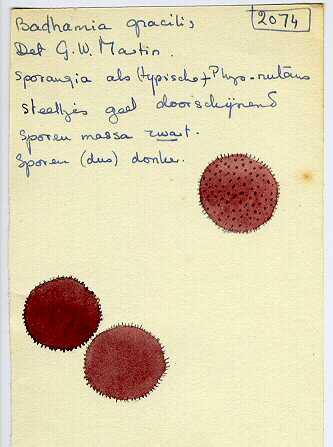 Badhamia gracilis
2074
Det G.W. Martin.
Sporangia als (typische) Phys. nutans
steeltjes geel doorschijnend
Sporen massa zwart.
Sporen (dus) donker.